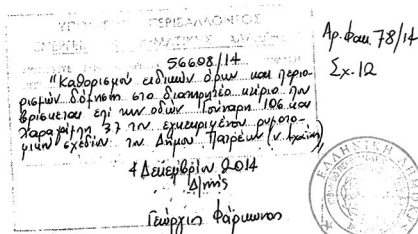 ΥΠΟΥΡΓΕΙΟ ΠΕΡΙΒΑΛΛΟΝΤΟΣ
56608/14
"Καθορισμός ειδικών όρων και περιο
ρισμών δόμησης στο διατηρητέο κτίριο που
βρίσκεται επί των οδών Γούναρη 106 και
Καραϊσκάκη 37 του εγκεκριμένου ρυμοτο
μικού σχεδίου του Δήμου Πατρέων (ν. Αχαΐας)
4 Δεκεμβρίου 2014
Δ/ντής
Γεώργιος
Αρ. φακ. 78/14
Σχ. 12
ΕΛΛΗΝΙΚΗ